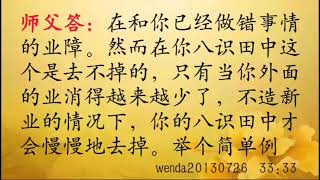 师父答：在和你已经做错事情
的业障。然而在你八识田中这
个是去不掉的，只有当你外面
的业消得越来越少了，不造新
业的情况下，你的八识田中才
会慢慢地去掉。举个简单例
wenda20130726 33:33